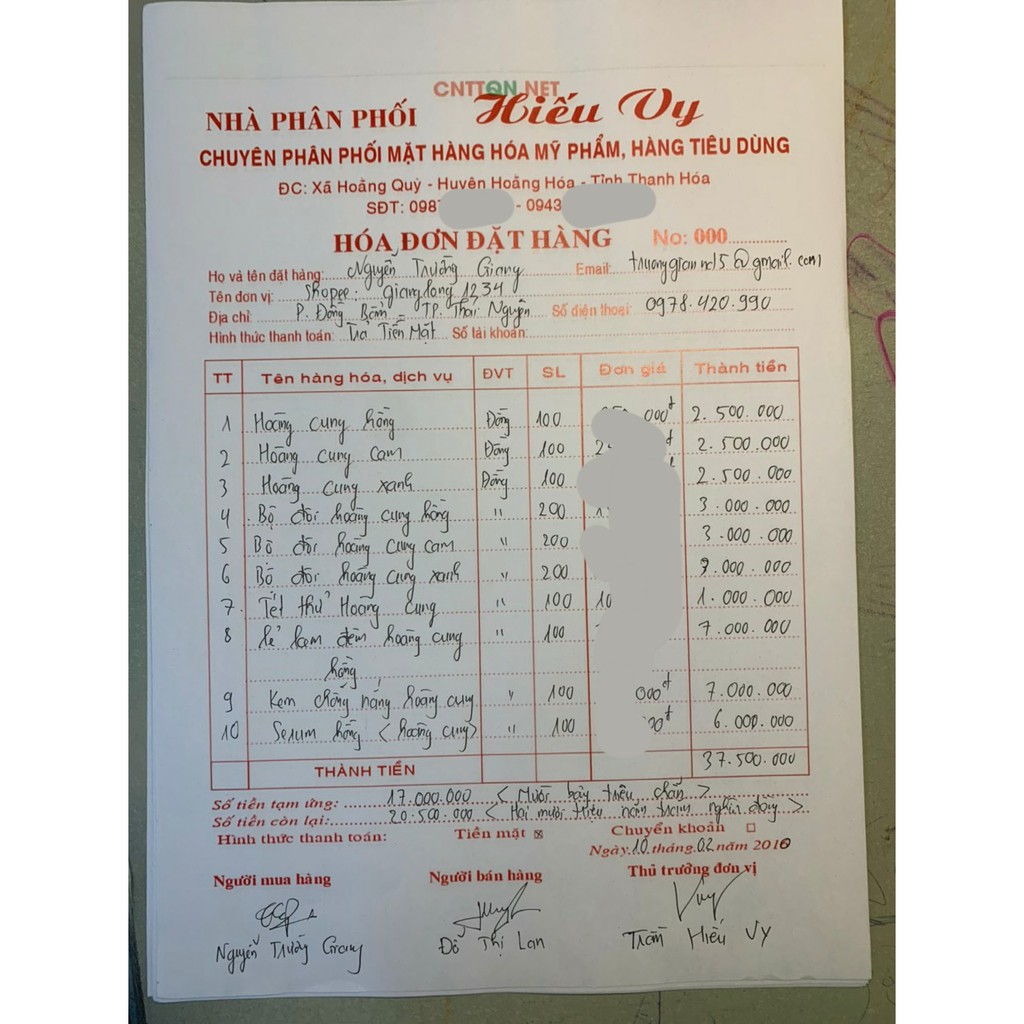 CNTTQN.NET
NHÀ PHÂN PHỐI Hiếu Vy
CHUYÊN PHÂN PHỐI MẶT HÀNG HÓA MỸ PHẨM, HÀNG TIÊU DÙNG
ĐC: Xã Hoằng Quỳ - Huyện Hoằng Hóa - Tỉnh Thanh Hóa
SĐT: 098 - 0943
HÓA ĐƠN ĐẶT HÀNG No: 000
Họ và tên đặt hàng: Nguyễn Trường Giang Email:
Tên đơn vị: Shopee: gianglong1234
Địa chỉ: P. Đồng Bẩm TP. Thái Nguyên Số điện thoại: 0978.420.990
Hình thức thanh toán: Trả Tiền Mặt Số tài khoản:
TT Tên hàng hóa, dịch vụ ĐVT SL Đơn giá Thành tiền
1 Hoàng cung hồng Đồng 100 000đ 2.500.000
2 Hoàng cung cam Đồng 100 2.500.000
3 Hoàng cung xanh Đồng 100 2.500.000
4 Bộ đôi hoàng cung hồng " 200 3.000.000
5 Bộ đôi hoàng cung cam " 200 3.000.000
6 Bộ đôi hoàng cung xanh " 200 3.000.000
7. Tét thử Hoàng cung " 100 10 1.000.000
8 lẻ kem đêm hoàng cung " 100 7.000.000
hồng
9 Kem chống nắng hoàng cung " 100 000đ 7.000.000
10 Serum hồng < hoàng cung > " 100 00đ 6.000.000
THÀNH TIỀN 37.500.000
Số tiền tạm ứng: 17.000.000 < Mười bảy triệu chẵn >
Số tiền còn lại: 20.500.000 < Hai mươi triệu năm trăm nghìn đồng >
Hình thức thanh toán: Tiền mặt ☒ Chuyển khoản ☐
Ngày 10 tháng 02 năm 2010
Người mua hàng Người bán hàng Thủ trưởng đơn vị
Nguyễn Trường Giang Đỗ Thị Lan Trần Hiếu Vy